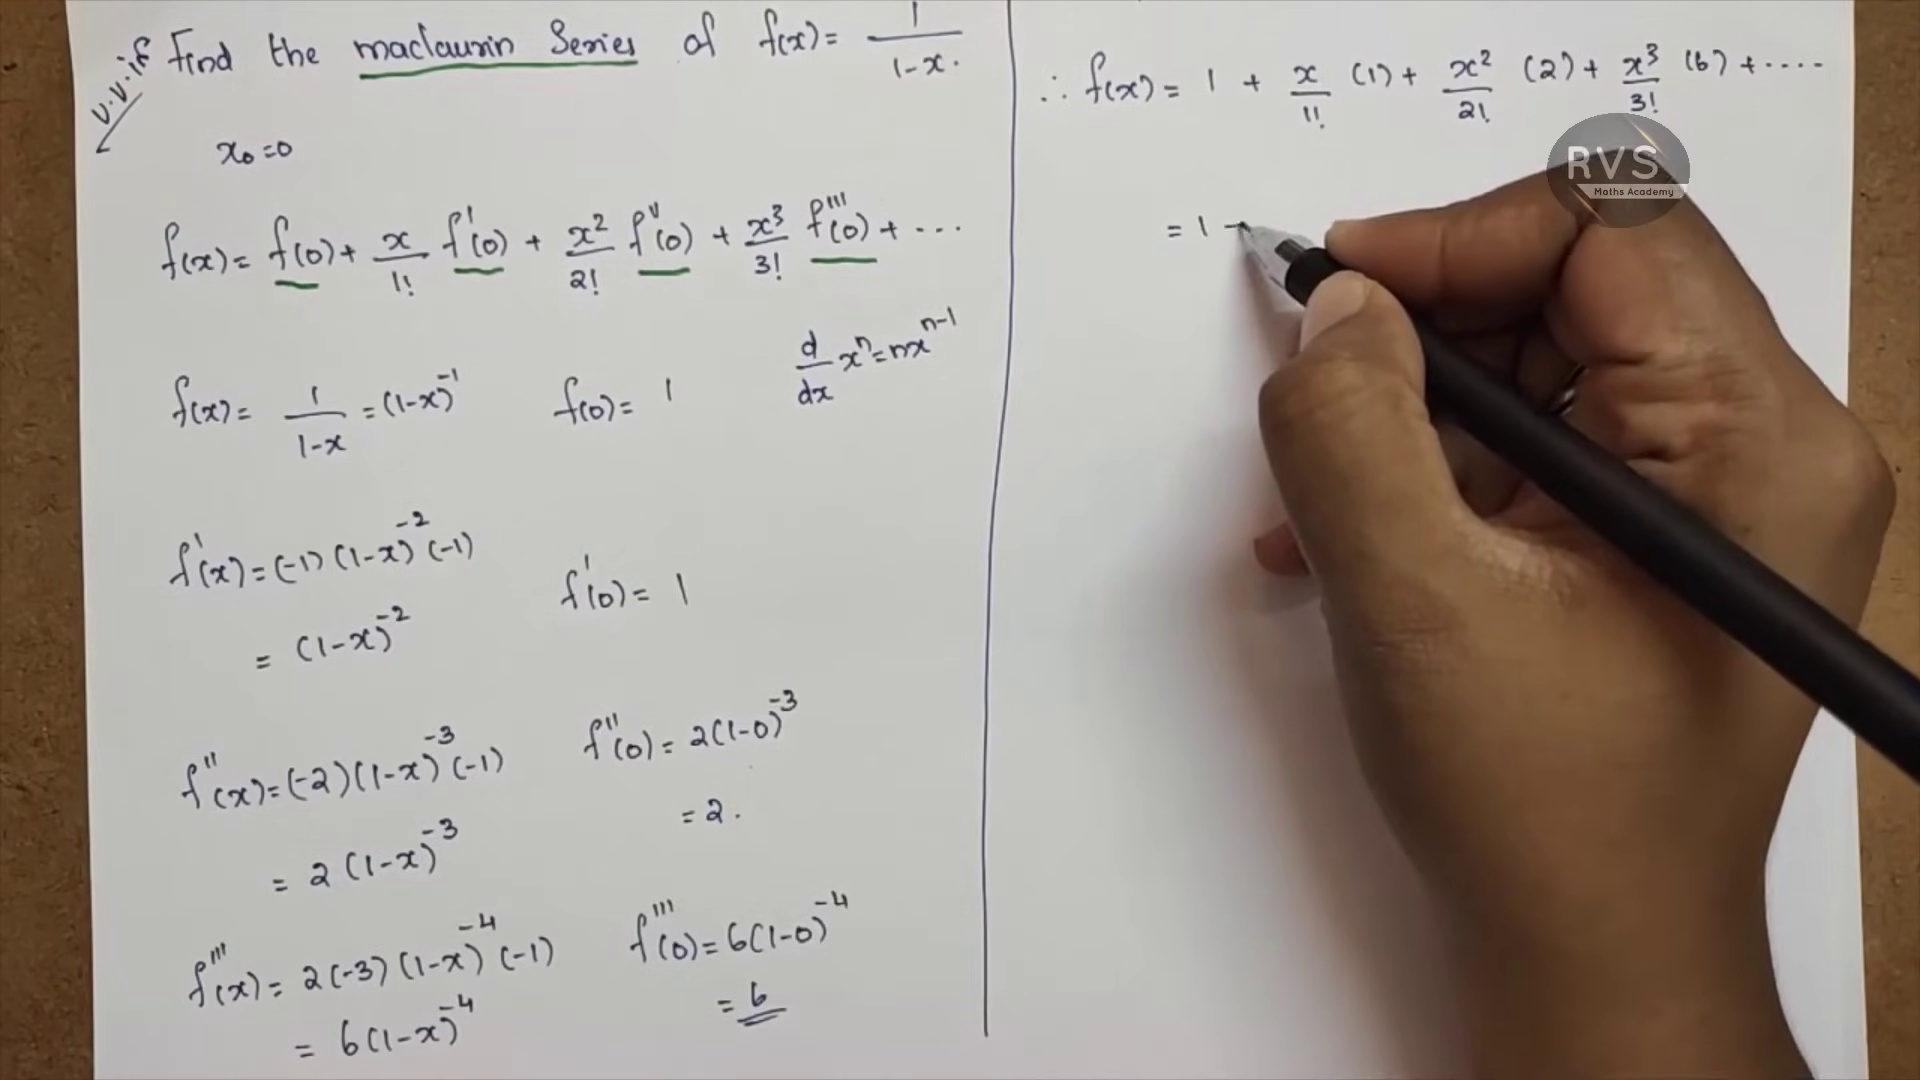 v.v.if Find the maclaurin Series of f(x) = 1/(1-x).
x₀=0
f(x) = f(0) + x/1! f'(0) + x²/2! f''(0) + x³/3! f'''(0) + ...
d/dx xⁿ = nxⁿ⁻¹
f(x) = 1/(1-x) = (1-x)⁻¹ f(0) = 1
f'(x) = (-1)(1-x)⁻²(-1)
= (1-x)⁻² f'(0) = 1
f''(x) = (-2)(1-x)⁻³(-1) f''(0) = 2(1-0)⁻³
= 2(1-x)⁻³ = 2.
f'''(x) = 2(-3)(1-x)⁻⁴(-1) f'''(0) = 6(1-0)⁻⁴
= 6(1-x)⁻⁴ = 6
∴ f(x) = 1 + x/1! (1) + x²/2! (2) + x³/3! (6) + ....
= 1
RVS
Maths Academy